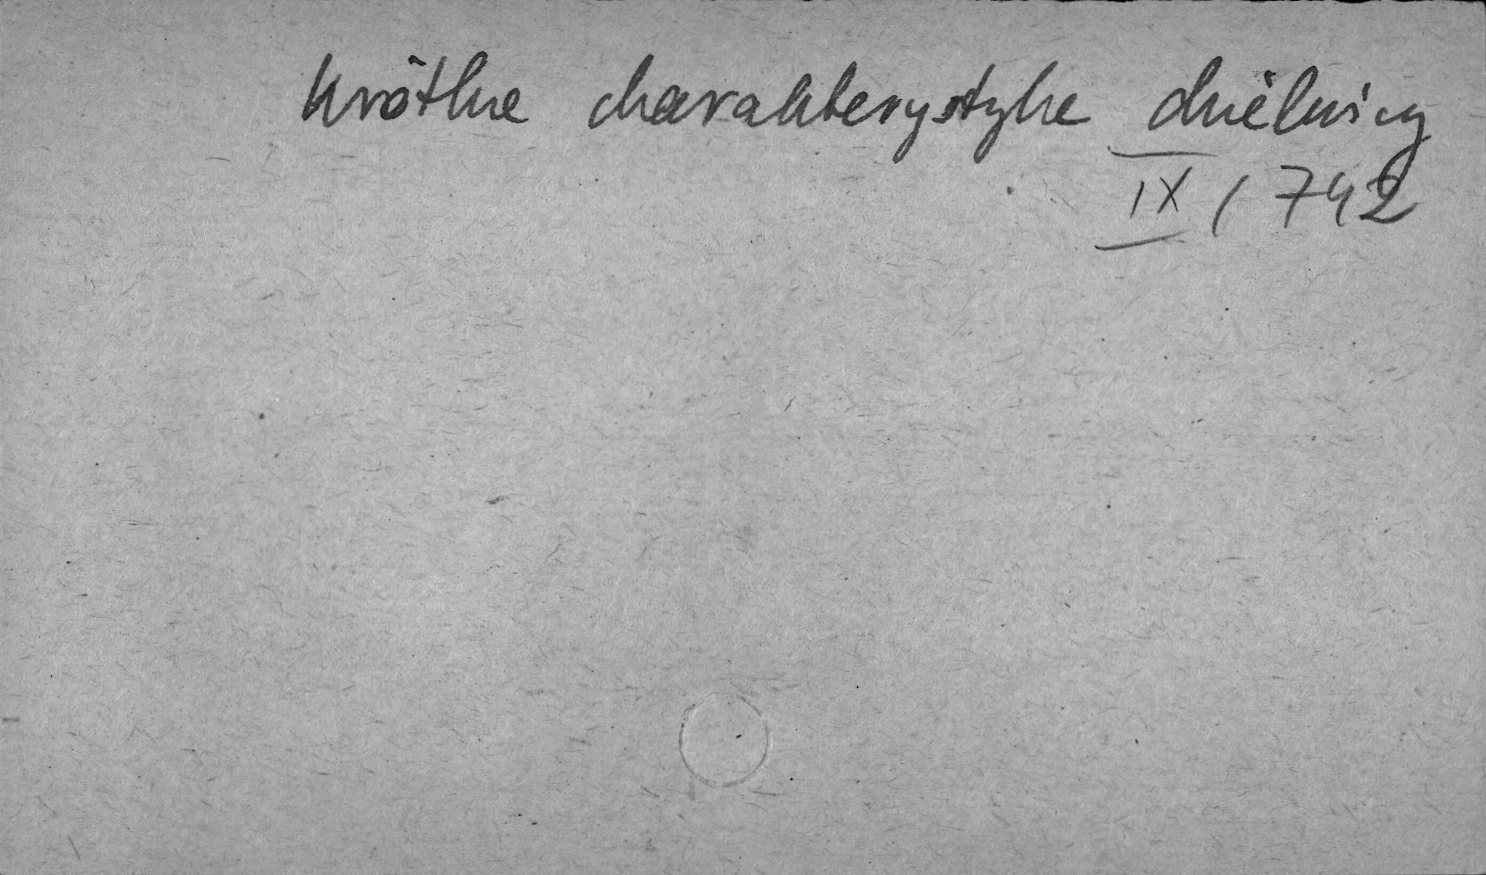 krótka charakterystyka dzielnicy
IX / 742